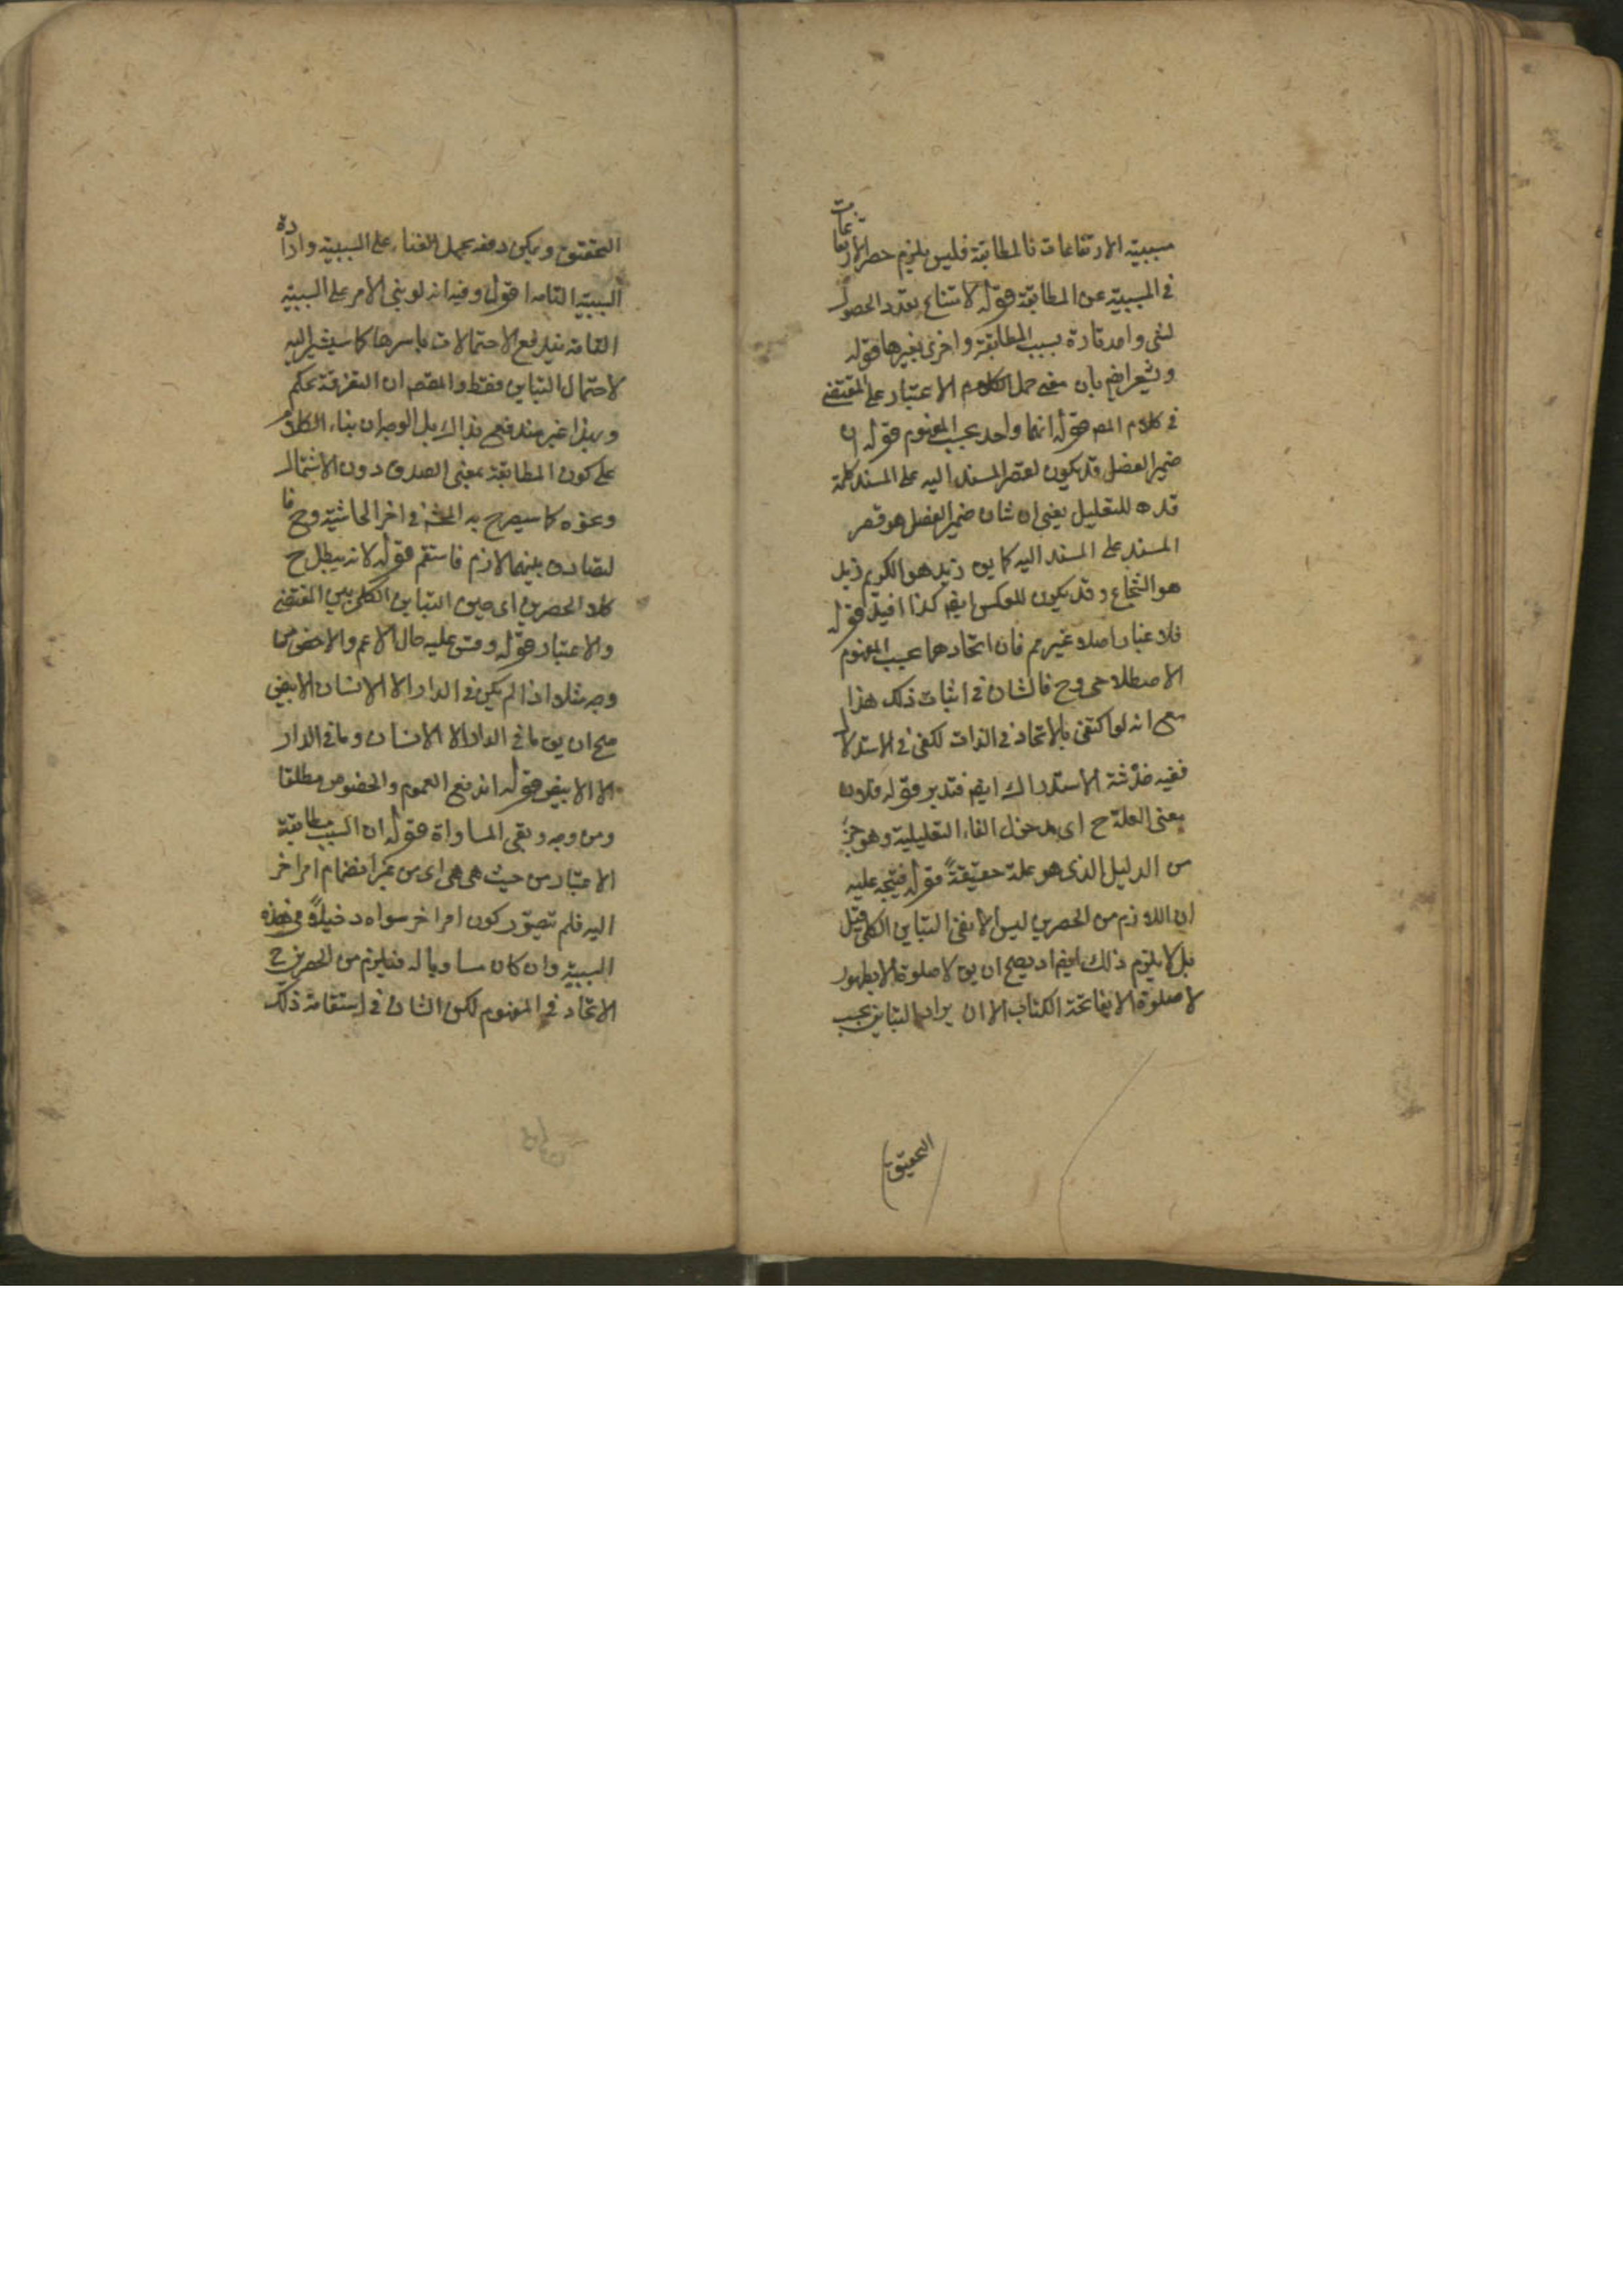 مسببية الارتفاعات فالمطابقة فليس يلزم حصر الارتفاعات
في المسببية عن المطابقة قوله لامتناع تعدد الحصول
لشئ واحد تارة بسبب المطابقة واخرى بغيرها قوله
ويشعر ايضا بان معنى حمل الكلام الاعتبار على المقتضى
في كلام المص قوله انهما واحد بحسب المفهوم قوله
ضمير الفصل قد يكون لقصر المسند اليه على المسند كلمة
قده للتقليل يعني ان شان ضمير الفصل هو قصر
المسند على المسند اليه كما يق زيد هو الكريم زيد
هو الشجاع وقد يكون للعكس ايضا كذا افيد قوله
فلا غبار اصلا غير تم فان اتحادهما بحسب المفهوم
الاصطلاحي وح فالشان في اثبات ذلك هذا
مع انه لو اكتفى بالاتحاد في الذات لكفى في الاستدلال
ففيه خدشة الاستدراك ايضا فتدبر قوله فتكون
بمعنى العلة ح اى مدخول الفاء التعليلية وهو جزء
من الدليل الذى هو علة حقيقةً قوله فيتجه عليه
ان اللازم من الحصرين ليس الا نفى التباين الكلى قيل
بل لا يلزم ذلك ايضا اذ يصح ان يق لا صلوة الا بطهور
لا صلوة الا بفاتحة الكتاب الا ان يراد التباين بحسب
التحقيق
التحقيق ويمكن دفعه بحمل الفناء على السببية وارادة
السببية التامة اقول وفيه انه لو بنى الامر على السببية
التامة يندفع الاحتمالات باسرها كما سيشير اليه
لاحتمال التباين فقط والمقصد ان التفرقة تحكم
وبهذا غير مندفع بذاك بل الوجه ان بناء الكلام
على كون المطابقة بمعنى الصدق دون الاشتمال
ونحوه كما سيصرح به المحشى في اخر الحاشية وح فا
لتصادق بينهما لازم فاستقم قوله لانه يبطل ح
كلا الحصرين اى حين التباين الكلى بين المقتضى
والاعتبار قوله وقس عليه حال الاعم والاخص من
وجه مثلا اذا لم يكن في الدار الا الانسان الابيض
صح ان يق ما في الدار الا الانسان وما في الدار
الا الابيض قوله اندفع العموم والخصوص مطلقا
ومن وجه وبقى المساواة قوله ان السبب مطابقة
الاعتبار من حيث هى هى اى من غير انضمام امر اخر
اليه فلم تصور كون امر اخر سواه دخيلاً في هذه
السببية وان كان مساويا له فيلزم من الحصرين ح
الاتحاد في المفهوم لكن الشان في استقامة ذلك